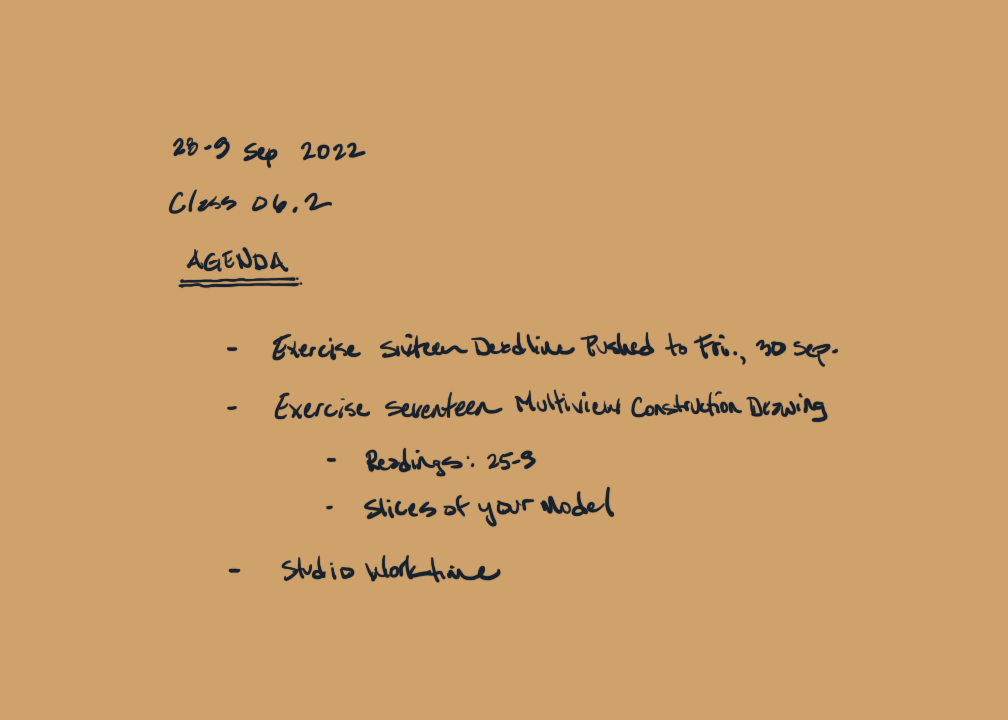 28-9 Sep 2022
Class 06.2
AGENDA
- Exercise Sixteen Deadline Pushed to Fri., 30 Sep.
- Exercise Seventeen Multiview Construction Drawing
- Readings: 25-9
- Slices of your Model
- Studio Worktime